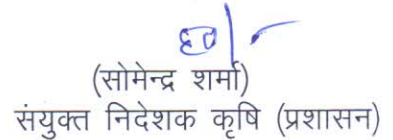 ह0/-
(सोमेन्द्र शर्मा)
संयुक्त निदेशक कृषि (प्रशासन)